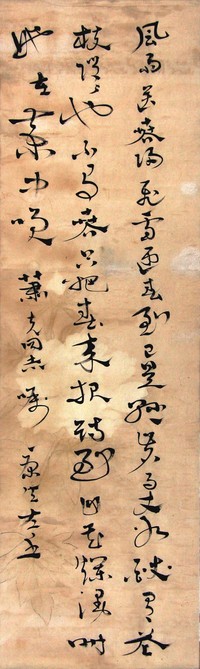 風雨送春歸飛雪迎春到已是懸崖百丈冰猶有花
枝俏〻也不爭春只把春来報待到山花爛漫时
她在叢中咲 蕭克同志嘱 康生左手